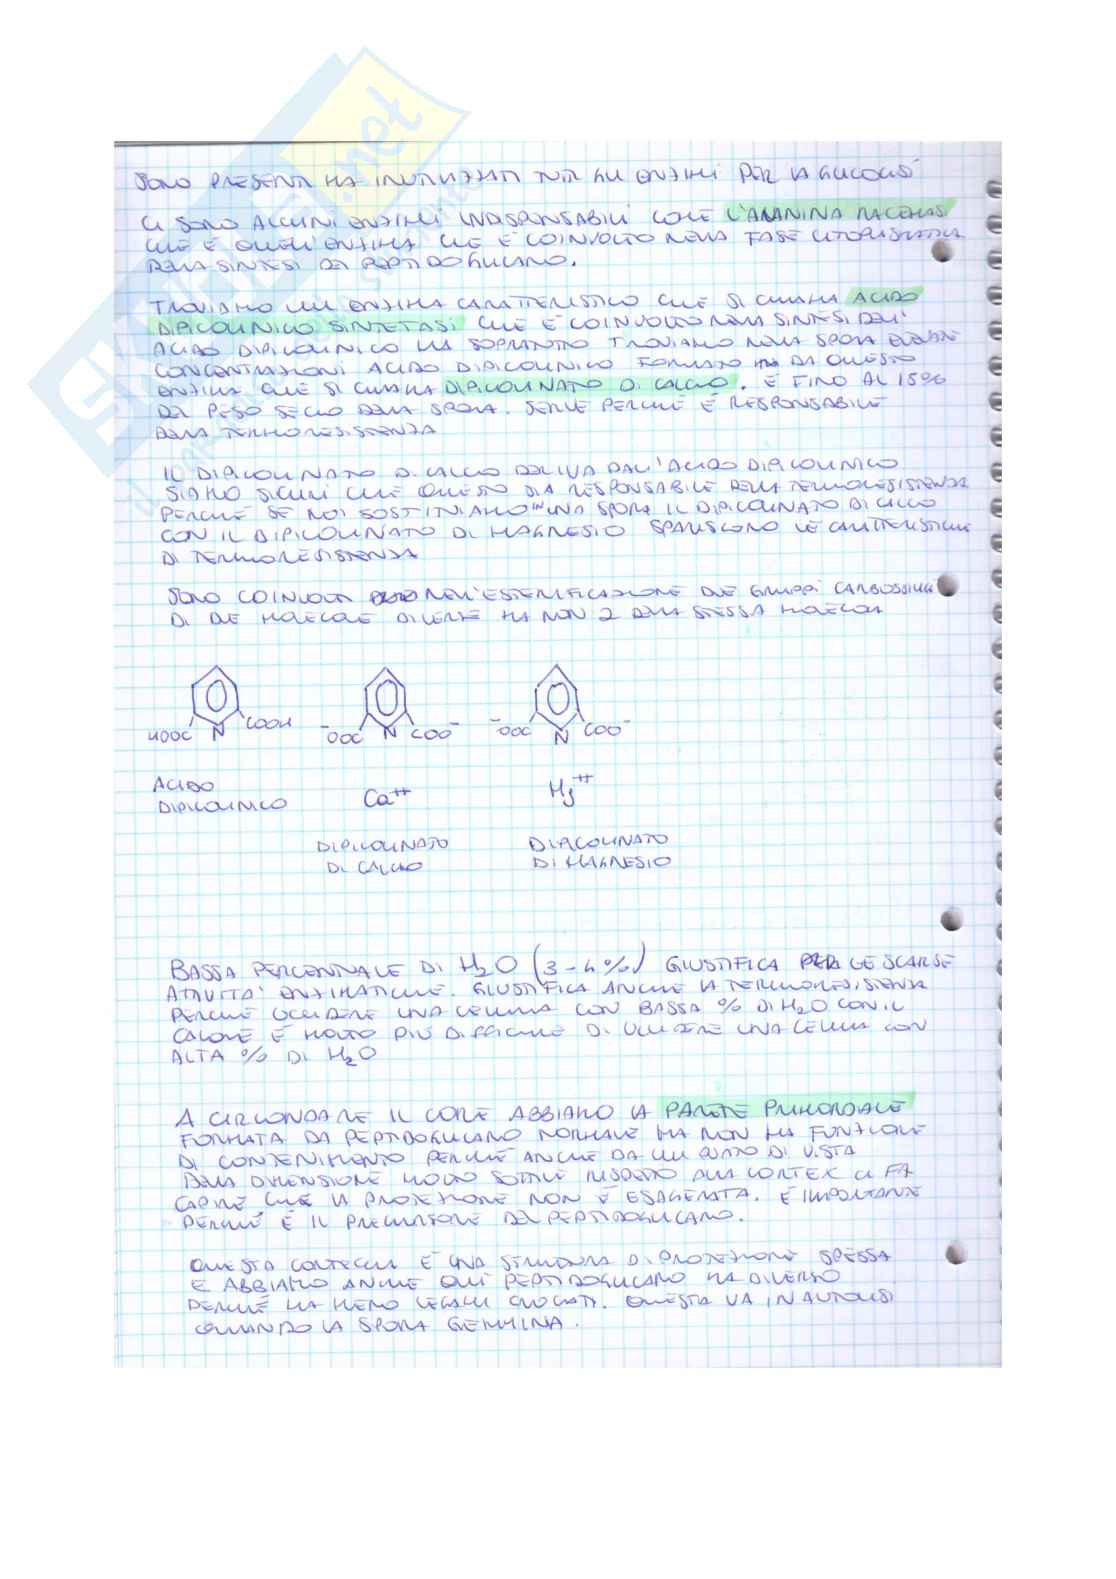 SONO PRESENTI MA INUTILIZZATI TUTTI GLI ENZIMI PER LA GLICOLISI
CI SONO ALCUNI ENZIMI INDISPONSABILI COME L'ALANINA RACEMASI
CHE È QUELL'ENZIMA CHE È COINVOLTO NELLA FASE CITOPLASMATICA
DELLA SINTESI DEL PEPTIDOGLICANO.
TROVIAMO UN ENZIMA CARATTERISTICO CHE SI CHIAMA ACIDO
DIPICOLINICO SINTETASI CHE È COINVOLTO NELLA SINTESI DELL'
ACIDO DIPICOLINICO MA SOPRATTUTTO TROVIAMO NELLA SPORA ELEVATE
CONCENTRAZIONI ACIDO DIPICOLINICO FORMATO DA QUESTO
ENZIMA CHE SI CHIAMA DIPICOLINATO DI CALCIO. È FINO AL 15%
DEL PESO SECCO DELLA SPORA. SERVE PERCHÉ È RESPONSABILE
DELLA TERMORESISTENZA
IL DIPICOLINATO DI CALCIO DERIVA DALL'ACIDO DIPICOLINICO
SIAMO SICURI CHE QUESTO SIA RESPONSABILE DELLA TERMORESISTENZA
PERCHÉ SE NOI SOSTITUIAMO IN UNA SPORA IL DIPICOLINATO DI CALCIO
CON IL DIPICOLINATO DI MAGNESIO SPARISCONO LE CARATTERISTICHE
DI TERMORESISTENZA
SONO COINVOLTI NELL'ESTERIFICAZIONE DUE GRUPPI CARBOSSILICI
DI DUE MOLECOLE DIVERSE MA NON 2 DELLA STESSA MOLECOLA
HOOC N COOH
⁻OOC N COO⁻
⁻OOC N COO⁻
ACIDO
DIPICOLINICO
Ca⁺⁺
Mg⁺⁺
DIPICOLINATO
DI CALCIO
DIPICOLINATO
DI MAGNESIO
BASSA PERCENTUALE DI H₂O (3-4%) GIUSTIFICA LE SCARSE
ATTIVITÀ ENZIMATICHE. GIUSTIFICA ANCHE LA TERMORESISTENZA
PERCHÉ UCCIDERE UNA CELLULA CON BASSA % DI H₂O CON IL
CALORE È MOLTO PIÙ DIFFICILE DI UCCIDERE UNA CELLULA CON
ALTA % DI H₂O
A CIRCONDARE IL CORE ABBIAMO LA PARETE PRIMORDIALE
FORMATA DA PEPTIDOGLICANO NORMALE MA NON HA FUNZIONE
DI CONTENIMENTO PERCHÉ ANCHE DA UN PUNTO DI VISTA
DELLA DIMENSIONE MOLTO SOTTILE RISPETTO ALLA CORTEX CI FA
CAPIRE CHE LA PROTEZIONE NON È ESAGERATA. È IMPORTANTE
PERCHÉ È IL PRECURSORE DEL PEPTIDOGLICANO.
QUESTA CORTECCIA È UNA STRUTTURA DI PROTEZIONE SPESSA
E ABBIAMO ANCHE QUI PEPTIDOGLICANO MA DIVERSO
PERCHÉ HA MENO LEGAMI CROCIATI. QUESTA VA IN AUTOLISI
QUANDO LA SPORA GERMINA.